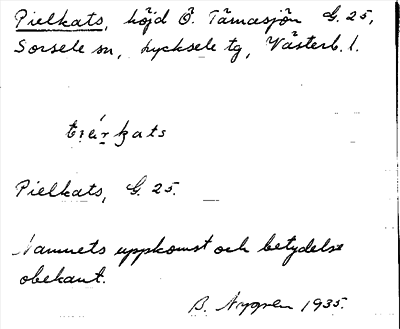 Pielkats, höjd Ö. Tämasjön G. 25,
Sorsele sn, Lycksele tg, Västerb. l.
Pielkats, G. 25.
Namnets uppkomst och betydelse
obekant.
B. Nygren 1935.